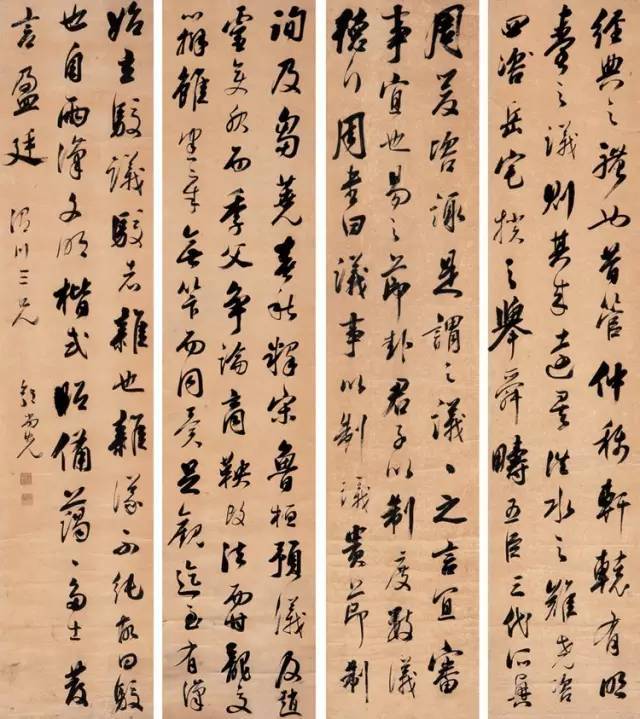 經典之體也昔管仲稱軒轅有明
臺之議則其來遠矣洪水之難堯咨
四岳宅揆之舉舜疇五臣三代所興
周爰咨諏是謂之議〻之言宜審
事宜也易之節卦君子以制度數議
德行周書曰議事以制議貴節制
詢及芻蕘春秋釋宋魯桓預議及趙
靈胡服而季父爭論商鞅改法而甘龍交
辯雖憲章無筭而同異足觀迄至有漢
始立駁議駁者雜也雜議不純故曰駁
也自兩漢文明楷式昭備藹〻多士發
言盈廷
渭川三兄
郭尚先